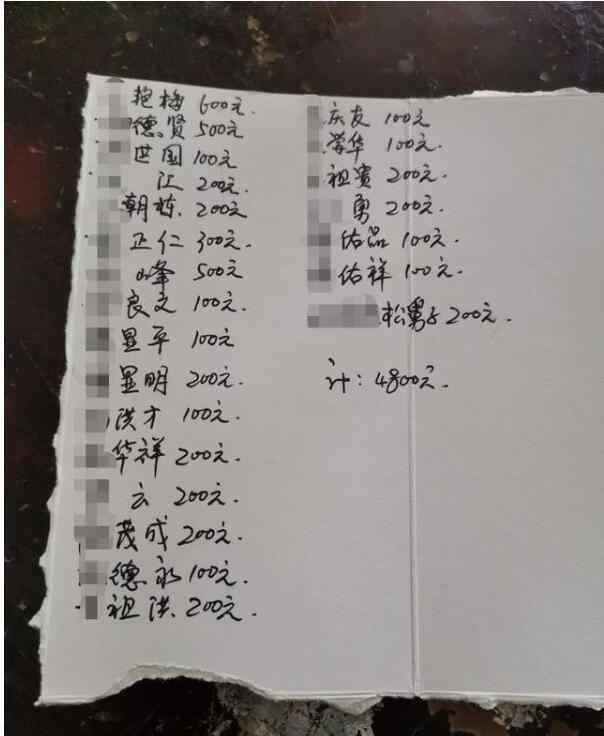 抱梅 600元.
德贤 500元
世国 100元
江 200元.
朝栋. 200元
正仁 300元.
峰 500元
良文 100元.
显平 100元
显明 200元.
洪才 100元.
华祥 200元.
云 200元.
茂成 200元.
德永 100元.
祖洪. 200元.
庆友 100元
荣华 100元.
祖贵 200元.
勇 200元.
佑品 100元.
佑祥 100元.
松舅子 200元.
计: 4800元.